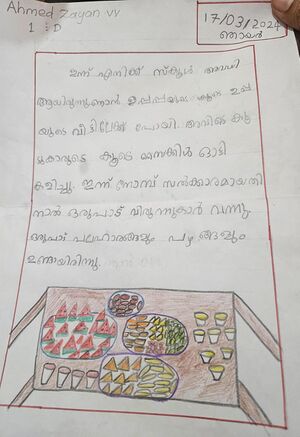 Ahmed Zayan VV
1 : D
17/03/2024
ഞായർ
ഇന്ന് എനിക്ക് സ്കൂൾ അവധി
ആയിരുന്നു. ഞാൻ ഉപ്പയുടെ കൂടെ ഉപ്പ
യുടെ വീട്ടിലേക്ക് പോയി. അവിടെ കൂട്ടു
കാരുടെ കൂടെ സൈക്കിൾ ഓട്ടി
കളിച്ചു. ഇന്ന് നോമ്പ് സൽക്കാരമായതി
നാൽ ഒരുപാട് വിരുന്നുകാർ വന്നു.
ഒരുപാട് പലഹാരങ്ങളും പഴങ്ങളും
ഉണ്ടായിരുന്നു.